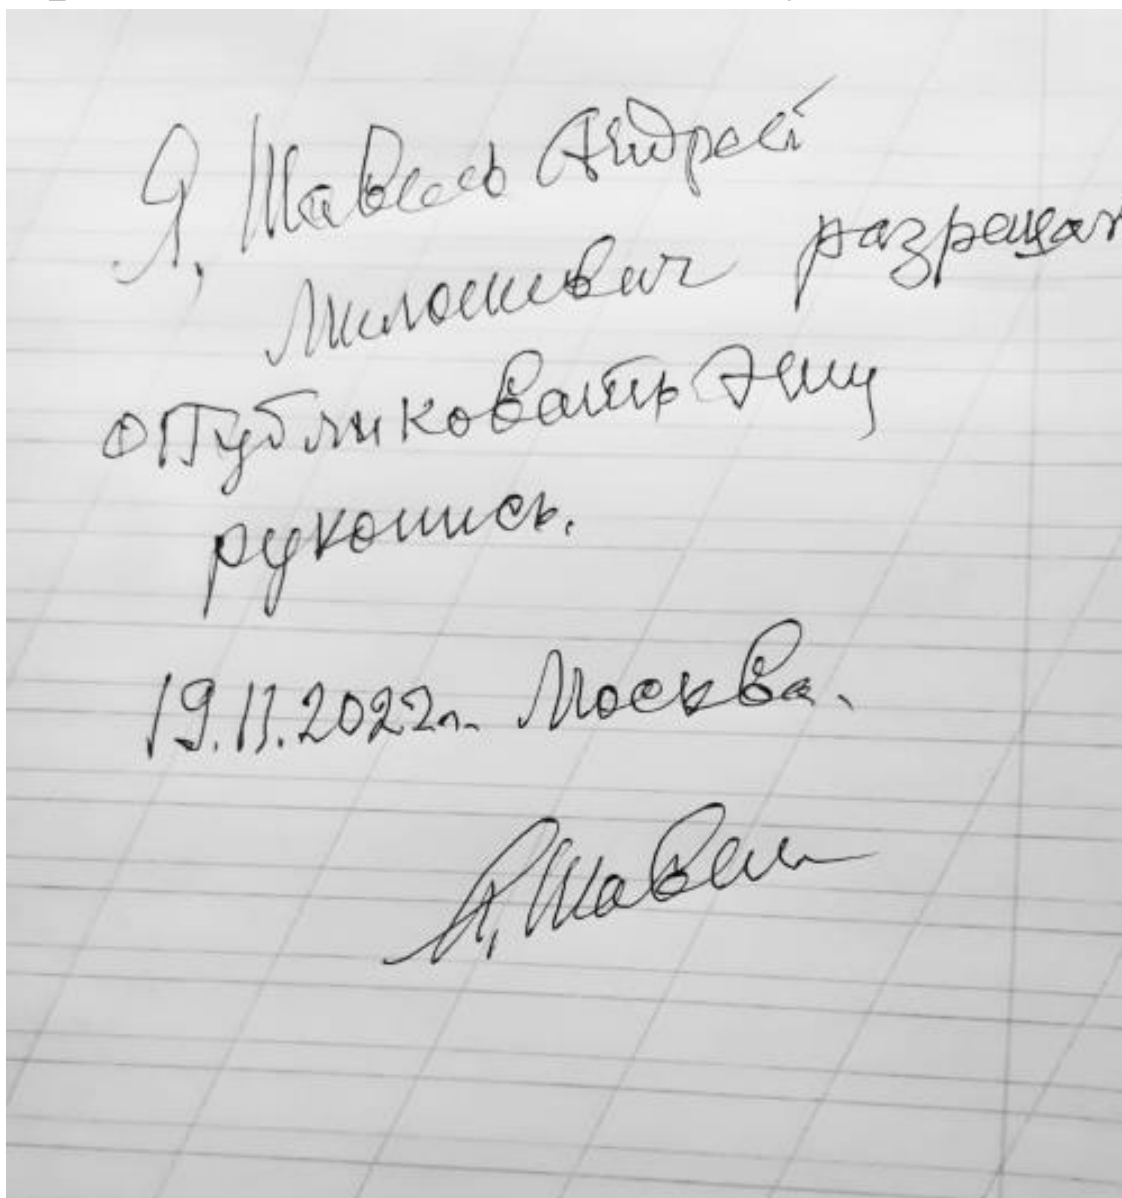 Я, Шавель Андрей
Милошевич разрешаю
опубликовать эту
рукопись.
19.11.2022г. Москва.
А. Шавель